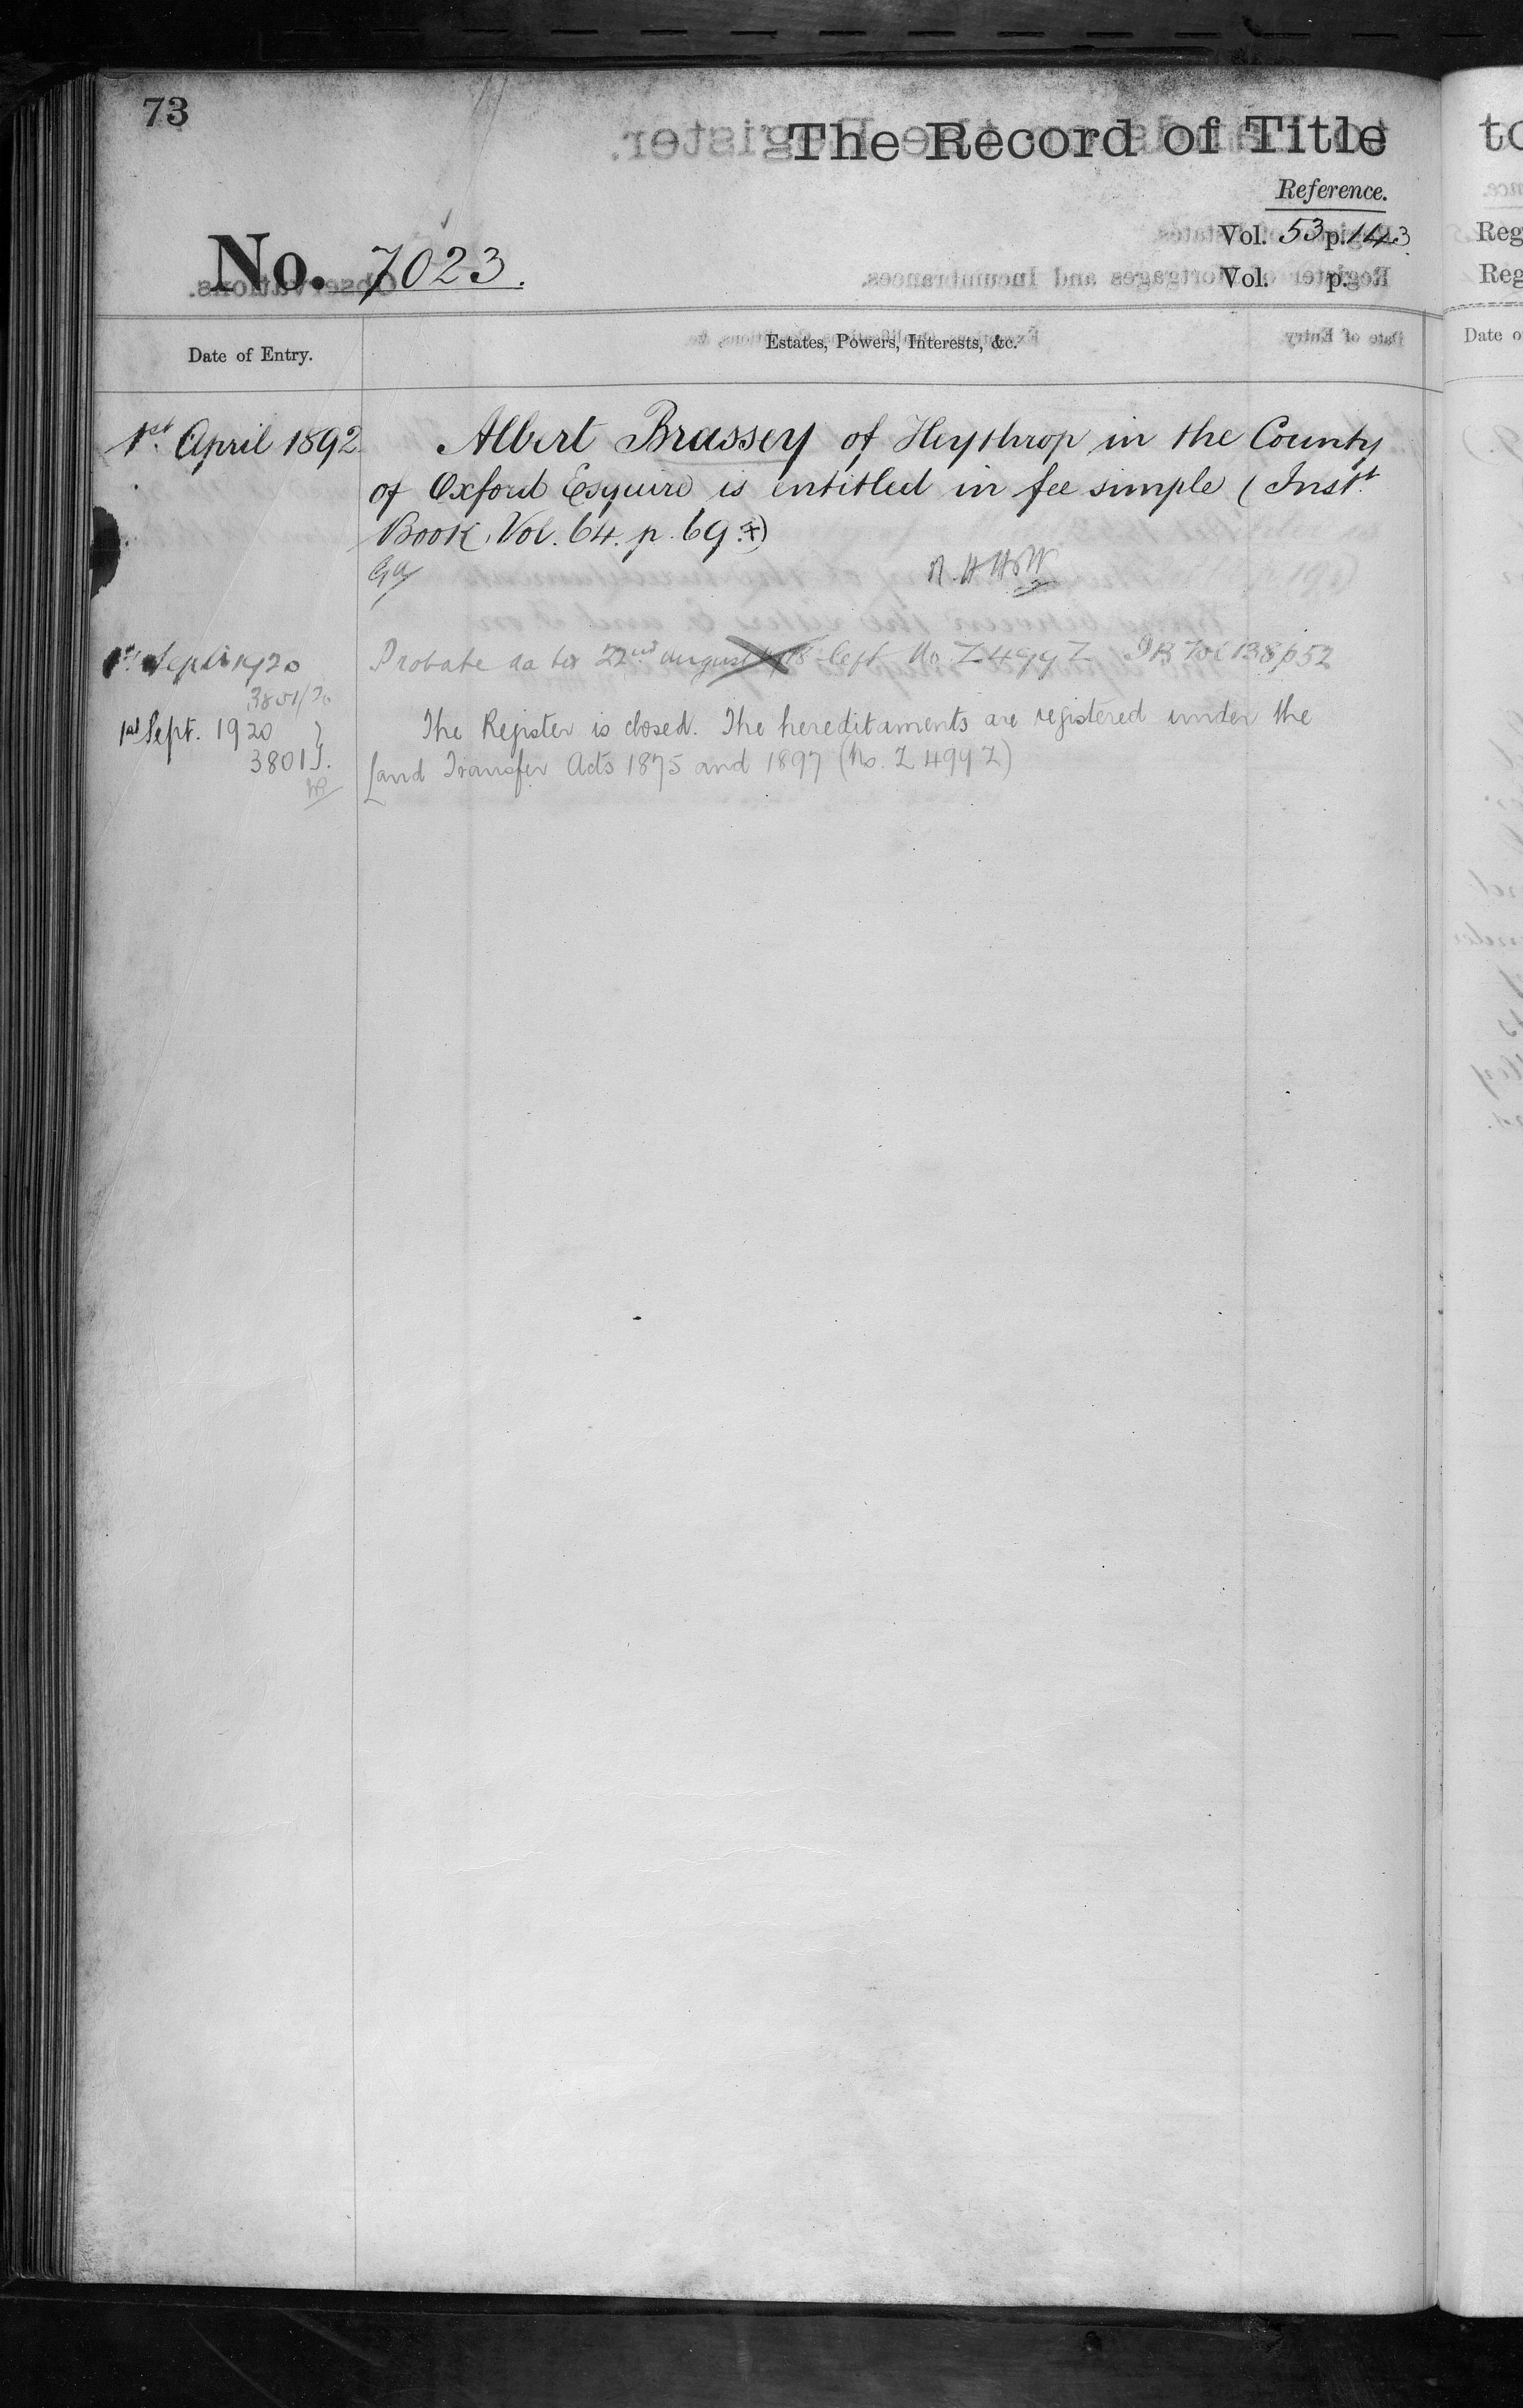 73
The Record of Title
Reference.
No. 7023.
Vol. 53 p. 143
Vol. p.
Date of Entry.
Estates, Powers, Interests, &c.
1st April 1892
Albert Brassey of Heythrop in the County
of Oxford Esquire is entitled in fee simple (Inst.
Book, Vol. 64. p. 69.)
1st Sept 1920
3801/20
Probate dated 22nd August 1918 Sept No. Z499Z IB Vol 138 p52
1st Sept. 1920
3801
The Register is closed. The hereditaments are registered under the
Land Transfer Acts 1875 and 1897 (No. Z 499 Z)
to
Reg
Reg
Date o